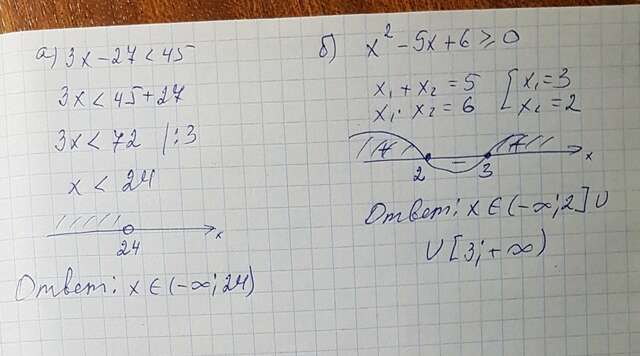 а) 3x - 27 < 45
3x < 45 + 27
3x < 72 | : 3
x < 24
24 x
Ответ: x ∈ (-∞; 24)
б) x² - 5x + 6 ≥ 0
x₁ + x₂ = 5 [ x₁ = 3
x₁ · x₂ = 6 x₂ = 2
+ - +
2 3 x
Ответ: x ∈ (-∞; 2] ∪
∪ [3; +∞)